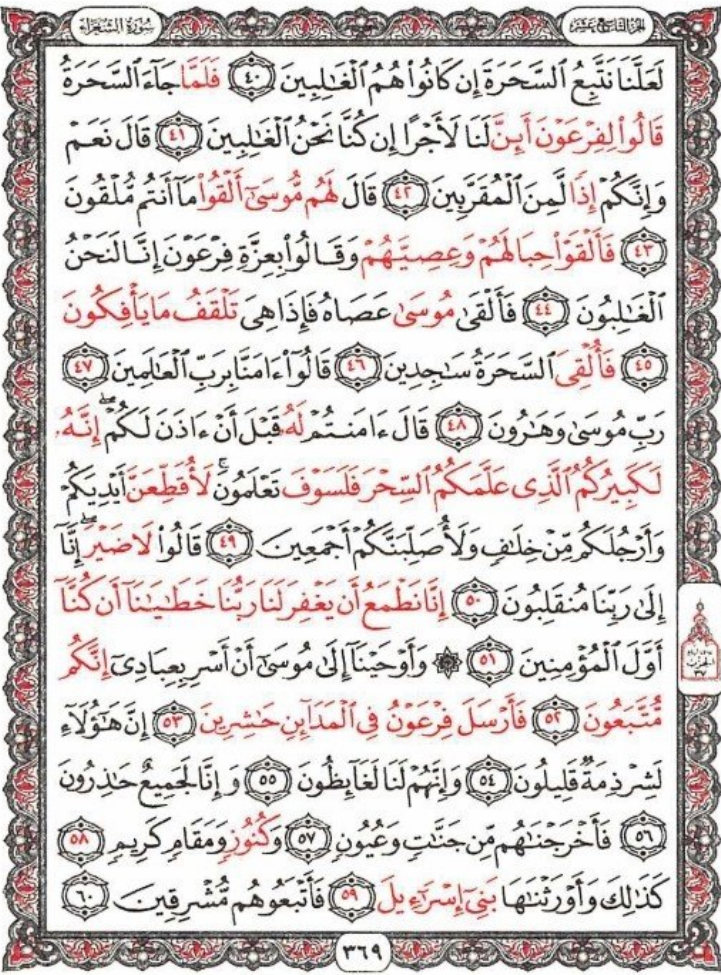 الجزء التاسع عشر
سورة الشعراء
لَعَلَّنَا نَتَّبِعُ السَّحَرَةَ إِن كَانُوا۟ هُمُ الْغَـٰلِبِينَ ٤٠ فَلَمَّا جَآءَ السَّحَرَةُ
قَالُوا۟ لِفِرْعَوْنَ أَئِنَّ لَنَا لَأَجْرًا إِن كُنَّا نَحْنُ الْغَـٰلِبِينَ ٤١ قَالَ نَعَمْ
وَإِنَّكُمْ إِذًا لَّمِنَ الْمُقَرَّبِينَ ٤٢ قَالَ لَهُم مُّوسَىٰٓ أَلْقُوا۟ مَآ أَنتُم مُّلْقُونَ
٤٣ فَأَلْقَوْا۟ حِبَالَهُمْ وَعِصِيَّهُمْ وَقَالُوا۟ بِعِزَّةِ فِرْعَوْنَ إِنَّا لَنَحْنُ
الْغَـٰلِبُونَ ٤٤ فَأَلْقَىٰ مُوسَىٰ عَصَاهُ فَإِذَا هِىَ تَلْقَفُ مَا يَأْفِكُونَ
٤٥ فَأُلْقِىَ السَّحَرَةُ سَـٰجِدِينَ ٤٦ قَالُوٓا۟ ءَامَنَّا بِرَبِّ الْعَـٰلَمِينَ ٤٧
رَبِّ مُوسَىٰ وَهَـٰرُونَ ٤٨ قَالَ ءَامَنتُمْ لَهُۥ قَبْلَ أَنْ ءَاذَنَ لَكُمْ ۖ إِنَّهُۥ
لَكَبِيرُكُمُ الَّذِى عَلَّمَكُمُ السِّحْرَ فَلَسَوْفَ تَعْلَمُونَ ۚ لَأُقَطِّعَنَّ أَيْدِيَكُمْ
وَأَرْجُلَكُم مِّنْ خِلَـٰفٍ وَلَأُصَلِّبَنَّكُمْ أَجْمَعِينَ ٤٩ قَالُوا۟ لَا ضَيْرَ ۖ إِنَّآ
إِلَىٰ رَبِّنَا مُنقَلِبُونَ ٥٠ إِنَّا نَطْمَعُ أَن يَغْفِرَ لَنَا رَبُّنَا خَطَـٰيَـٰنَآ أَن كُنَّآ
أَوَّلَ الْمُؤْمِنِينَ ٥١ ۞ وَأَوْحَيْنَآ إِلَىٰ مُوسَىٰٓ أَنْ أَسْرِ بِعِبَادِىٓ إِنَّكُم
مُّتَّبَعُونَ ٥٢ فَأَرْسَلَ فِرْعَوْنُ فِى الْمَدَآئِنِ حَـٰشِرِينَ ٥٣ إِنَّ هَـٰٓؤُلَآءِ
لَشِرْذِمَةٌ قَلِيلُونَ ٥٤ وَإِنَّهُمْ لَنَا لَغَآئِظُونَ ٥٥ وَإِنَّا لَجَمِيعٌ حَـٰذِرُونَ
٥٦ فَأَخْرَجْنَـٰهُم مِّن جَنَّـٰتٍ وَعُيُونٍ ٥٧ وَكُنُوزٍ وَمَقَامٍ كَرِيمٍ ٥٨
كَذَٰلِكَ وَأَوْرَثْنَـٰهَا بَنِىٓ إِسْرَٰٓءِيلَ ٥٩ فَأَتْبَعُوهُم مُّشْرِقِينَ ٦٠
٣٦٩